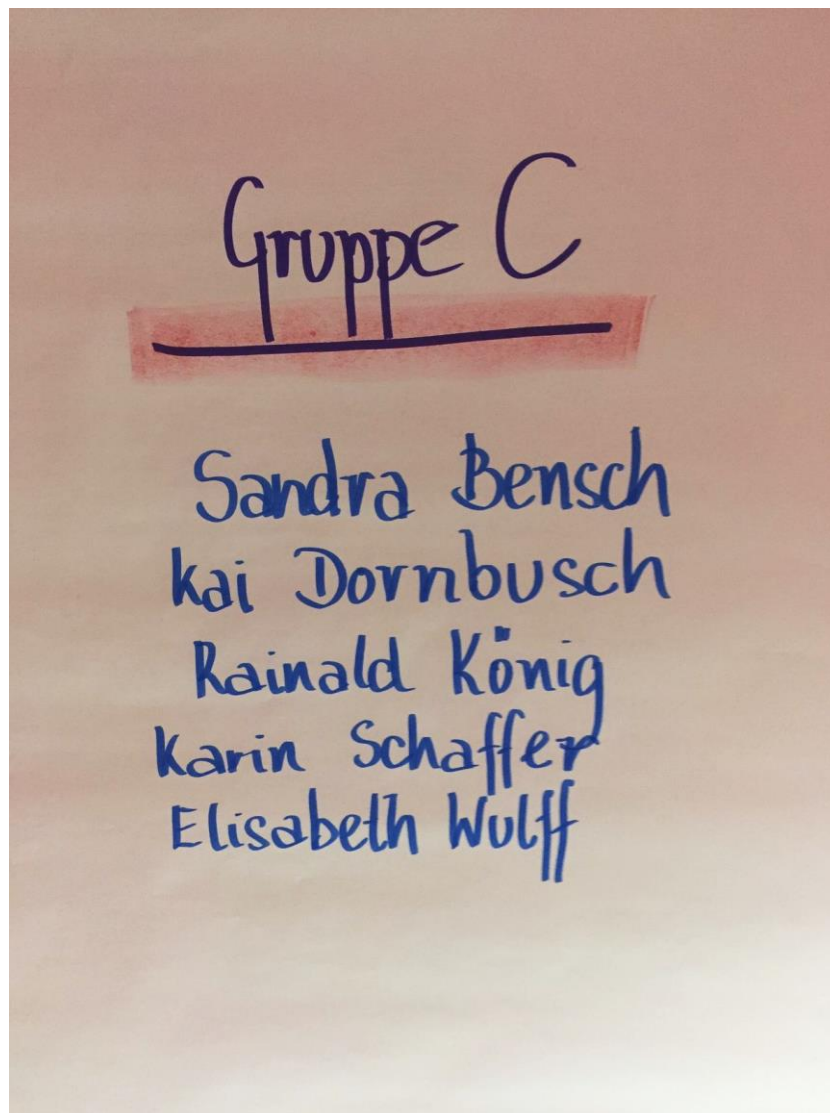 Gruppe C
Sandra Bensch
Kai Dornbusch
Rainald König
Karin Schaffer
Elisabeth Wulff